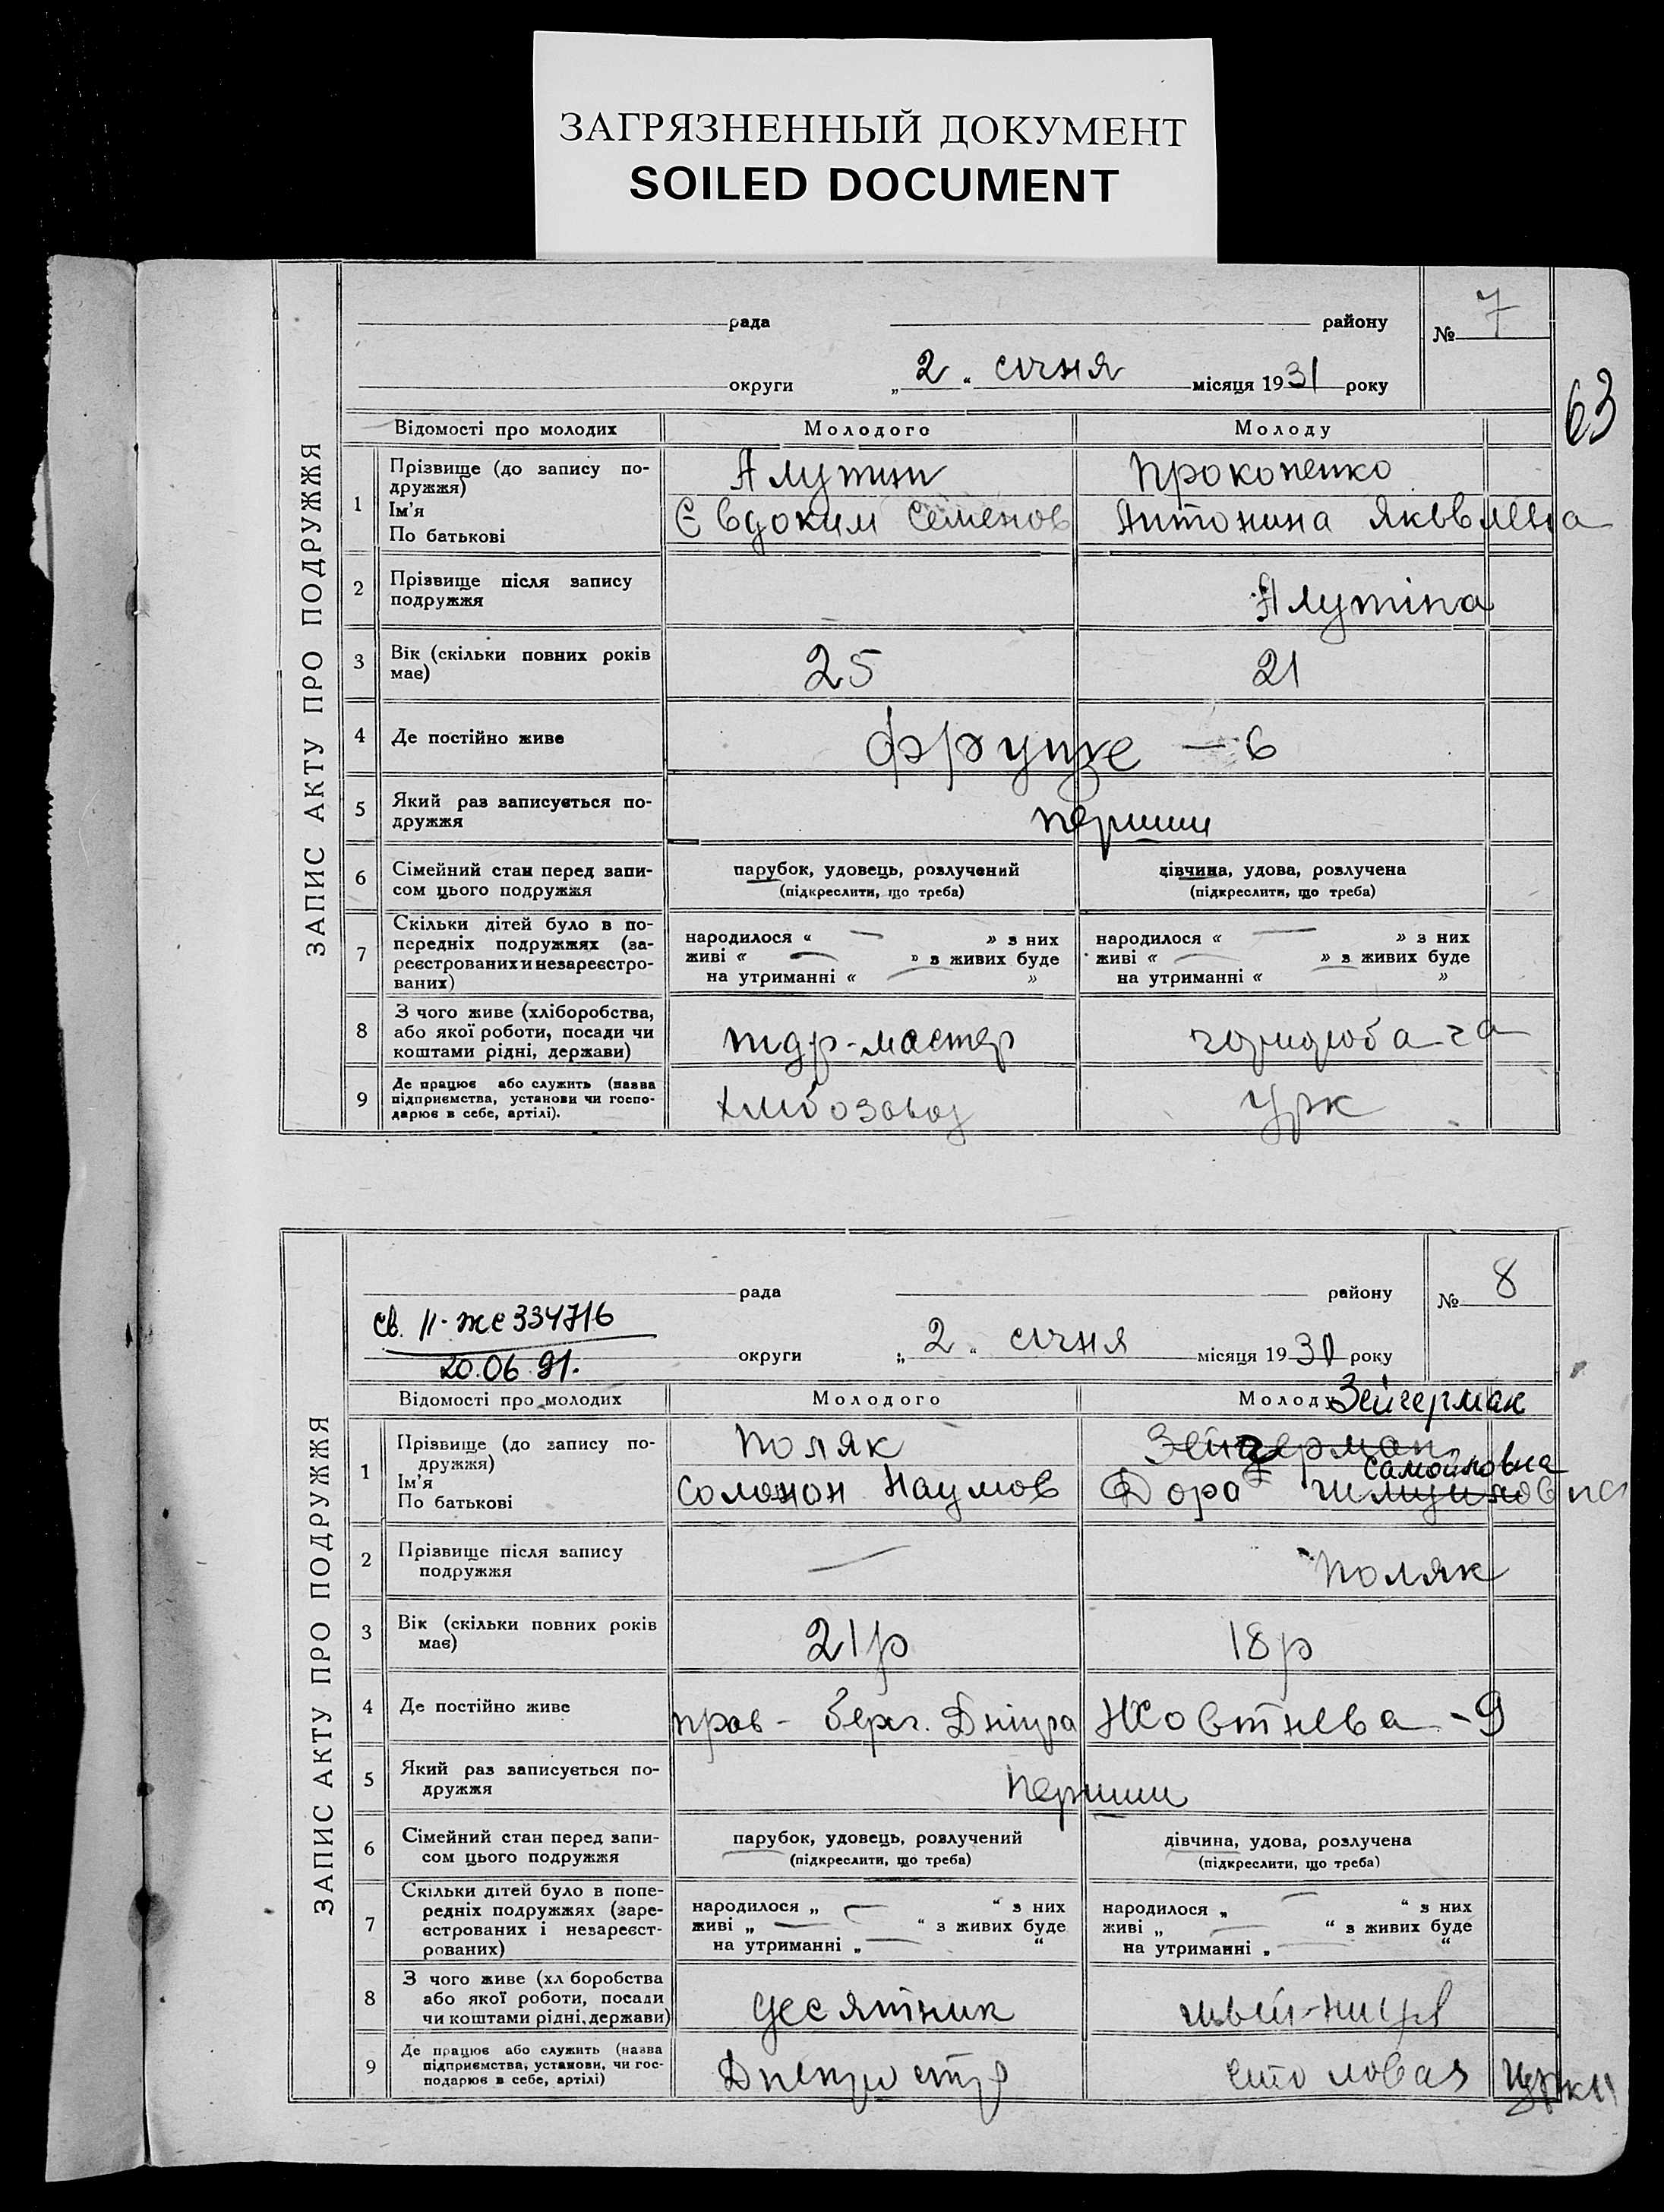 ЗАГРЯЗНЕННЫЙ ДОКУМЕНТ
SOILED DOCUMENT
63
ЗАПИС АКТУ ПРО ПОДРУЖЖЯ
рада району № 7
округи „ 2 “ січня місяця 1931 року
Відомості про молодих Молодого Молоду
1 Прізвище (до запису по-
дружжя)
Ім'я
По батькові
Алутин Прокопенко
Євдоким Семенов Антонина Яковлевна
2 Прізвище після запису
подружжя
Алутіна
3 Вік (скільки повних років
має)
25 21
4 Де постійно живе
Фрунзе — 6
5 Який раз записується по-
дружжя
перший
6 Сімейний стан перед запи-
сом цього подружжя
парубок, удовець, розлучений
(підкреслити, що треба)
дівчина, удова, розлучена
(підкреслити, що треба)
7 Скільки дітей було в по-
передніх подружжях (за-
реєстрованих и незареєстро-
ваних)
народилося « — » з них
живі « — » з живих буде
на утриманні « — »
народилося « — » з них
живі « — » з живих буде
на утриманні « »
8 З чого живе (хліборобства,
або якої роботи, посади чи
коштами рідні, держави)
мастер
9 Де працює або служить (назва
підприємства, установи чи госпо-
дарює в себе, артілі).
Хлібозавод УРК
ЗАПИС АКТУ ПРО ПОДРУЖЖЯ
рада району № 8
св. II-ЖС 334716
округи „ 2 “ січня місяця 1931 року
20.06.91.
Відомості про молодих Молодого Молоду
Зейгермак
1 Прізвище (до запису по-
дружжя)
Ім'я
По батькові
Поляк Зейгерман
Самойловна
Соломон Наумов Дора
2 Прізвище після запису
подружжя
— Поляк
3 Вік (скільки повних років
має)
21р 18р
4 Де постійно живе
прав - берег. Дніпра Жовтнева - 9
5 Який раз записується по-
дружжя
перший
6 Сімейний стан перед запи-
сом цього подружжя
парубок, удовець, розлучений
(підкреслити, що треба)
дівчина, удова, розлучена
(підкреслити, що треба)
7 Скільки дітей було в попе-
редніх подружжях (заре-
єстрованих і незареєст-
рованих)
народилося „ — “ з них
живі „ — “ з живих буде
на утриманні „ — “
народилося „ — “ з них
живі „ — “ з живих буде
на утриманні „ — “
8 З чого живе (хл боробства
або якої роботи, посади
чи коштами рідні, держави)
десятник швей-ниця
9 Де працює або служить (назва
підприємства, установи, чи гос-
подарює в себе, артілі)
Днепрстр столовая